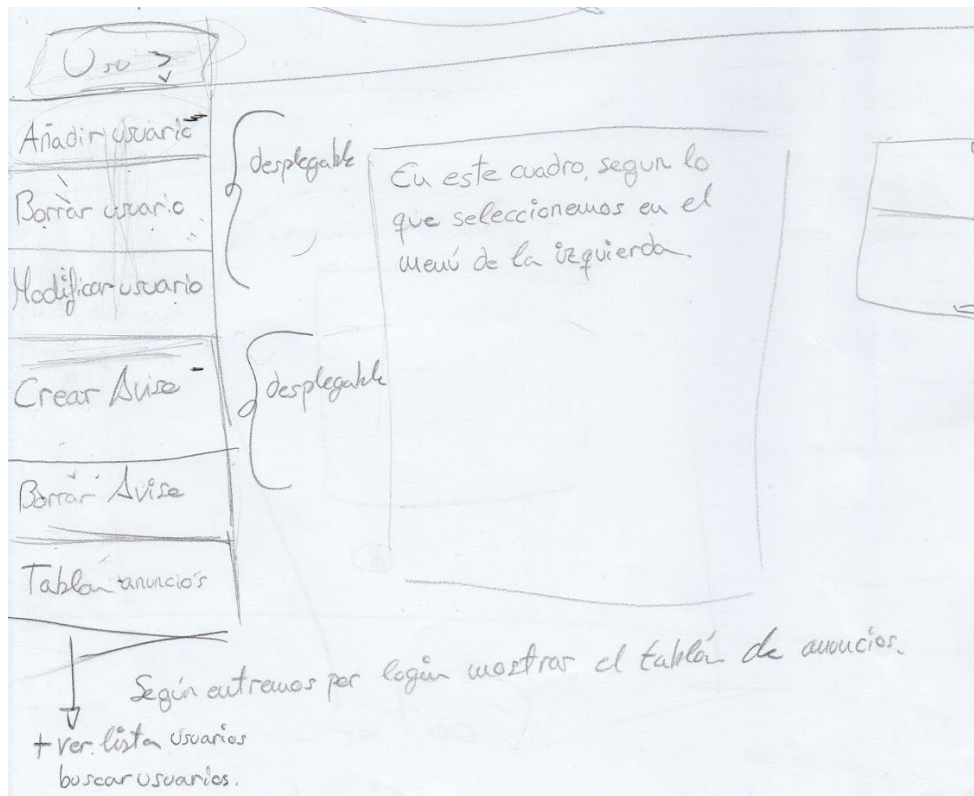 Añadir usuario
Borrar usuario
Modificar usuario
desplegable
Crear Aviso
Borrar Aviso
desplegable
Tablón anuncios
En este cuadro, segun lo
que seleccionemos en el
menú de la izquierda.
Según entremos por login mostrar el tablón de anuncios.
+ ver lista usuarios
buscar usuarios.